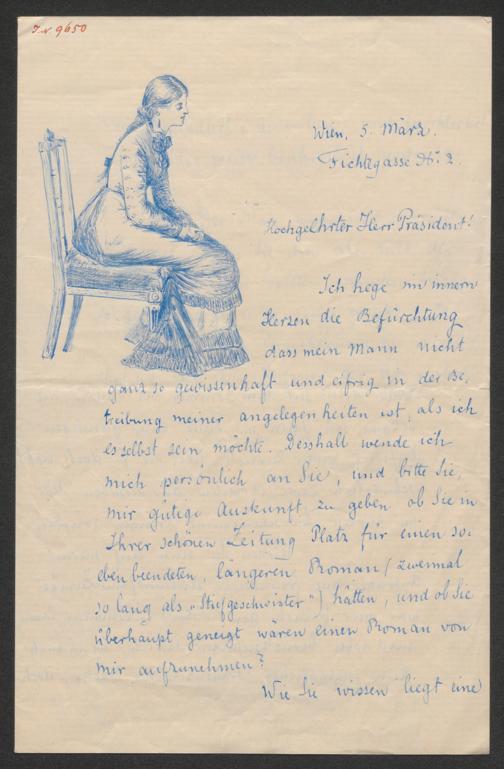 I.N. 9650
Wien, 5. März.
Fichtegasse No. 2.
Hochgelhrter Herr Präsident!
Ich hege im innern
Herzen die Befürchtung
dass mein Mann nicht
ganz so gewissenhaft und eifrig in der Be-
treibung meiner angelegenheiten ist, als ich
es selbst sein möchte. Desshalb wende ich
mich persönlich an Sie, und bitte Sie,
mir gütige Auskunft zu geben ob Sie in
Ihrer schönen Zeitung Platz für einen so-
eben beendeten, längeren Roman (zweimal
so lang als „Stiefgeschwister") hätten, und ob Sie
überhaupt geneigt wären einen Roman von
mir aufzunehmen?
Wie Sie wissen liegt eine